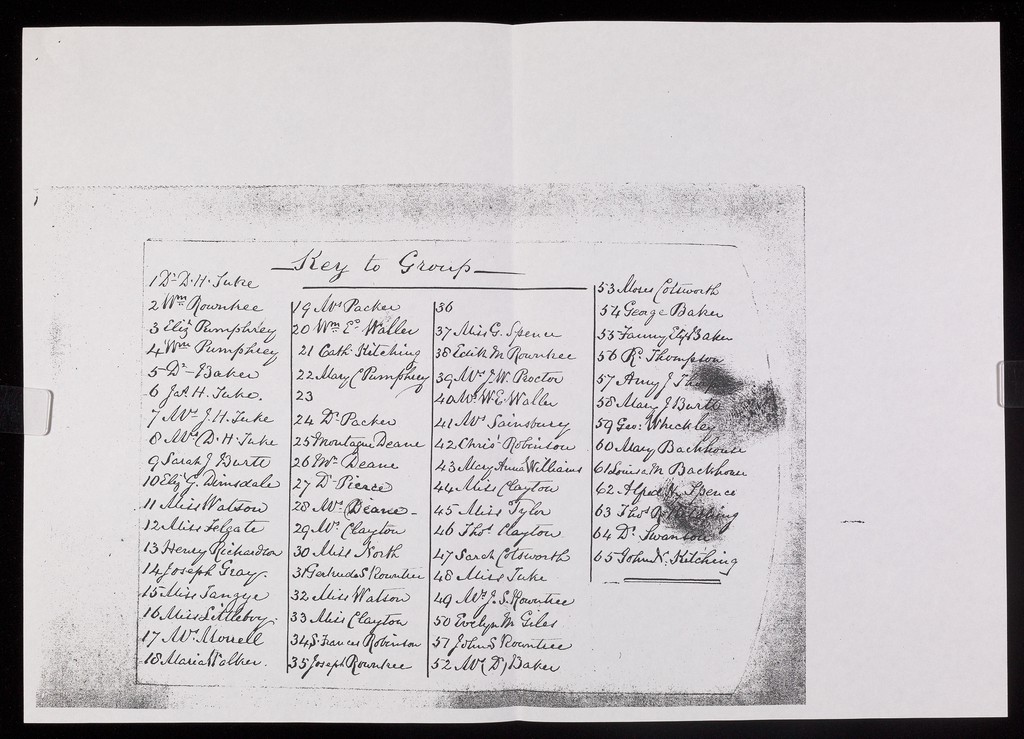 Key to Group
1 Dr D. H. Tuke
2 Wm Rowntree
3 Eliz. Pumphrey
4 Wm Pumphrey
5 Dr Baker
6 Jas H. Tuke.
7 Mrs J. H. Tuke
8 Mrs D. H. Tuke
9 Sarah J Burtt
10 Eliz G. Dimsdale
11 Miss Watson
12 Miss Felgate
13 Henry Richardson
14 Joseph Gray.
15 Miss Tangye
16 Miss Littleboy.
17 Mr. Morrell
18 Maria Walker.
19 Mrs Packer
20 Wm E. Waller
21 Cath. Kitching
22 Mary C Pumphrey
23
24 Dr Packer
25 Montague Deane
26 Mr Deane
27 Dr Pierce
28 Mrs Deane
29 Mr. Clayton
30 Miss North
31 Gertrude S Rowntree
32 Miss Watson
33 Miss Clayton
34 S. Frances Robinson
35 Joseph Rowntree
36
37 Miss G. Spence
38 Edith M Rowntree
39 Mrs J. W. Procter
40 Mrs W. E. Waller
41 Mrs Sainsbury
42 Chrisr Robinson
43 Mary Anna Williams
44 Miss Clayton
45 Miss Tylor
46 Thos. Clayton
47 Sarah Cotsworth
48 Miss Tuke
49 Mrs J. S. Rowntree
50 Evelyn M Giles
51 John S Rowntree
52 Mrs (Dr) Baker
53 Moses Cotsworth
54 George Baker
55 Fanny Eliz Baker
56 R. Thompson
57 Amy J
58 Mary J Burtt
59 Geo: Wheckley
60 Mary Backhouse
61 Louisa M Backhouse
62 Alfred Spence
63 Thos
64 Dr Swanson
65 John N. Kitching